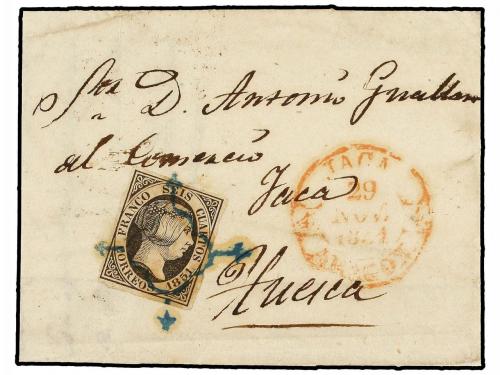 D. Antonio
al Comercio
Jaca
Huesca
FRANCO SEIS CUARTOS
CORREOS 1851
JACA
29
NOV
1851
ARAGON